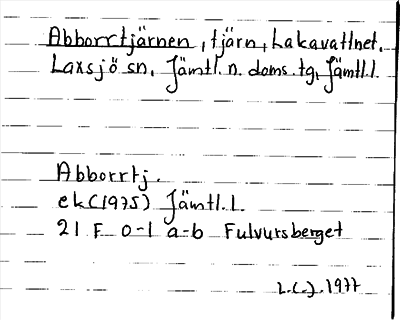 Abborrtjärnen, tjärn, Lakavattnet.
Laxsjö sn. Jämtl. n. doms. tg, Jämtl. l.
Abborrtj.
ek (1975) Jämtl. l.
21 F 0-1 a-b Fulvursberget
1977